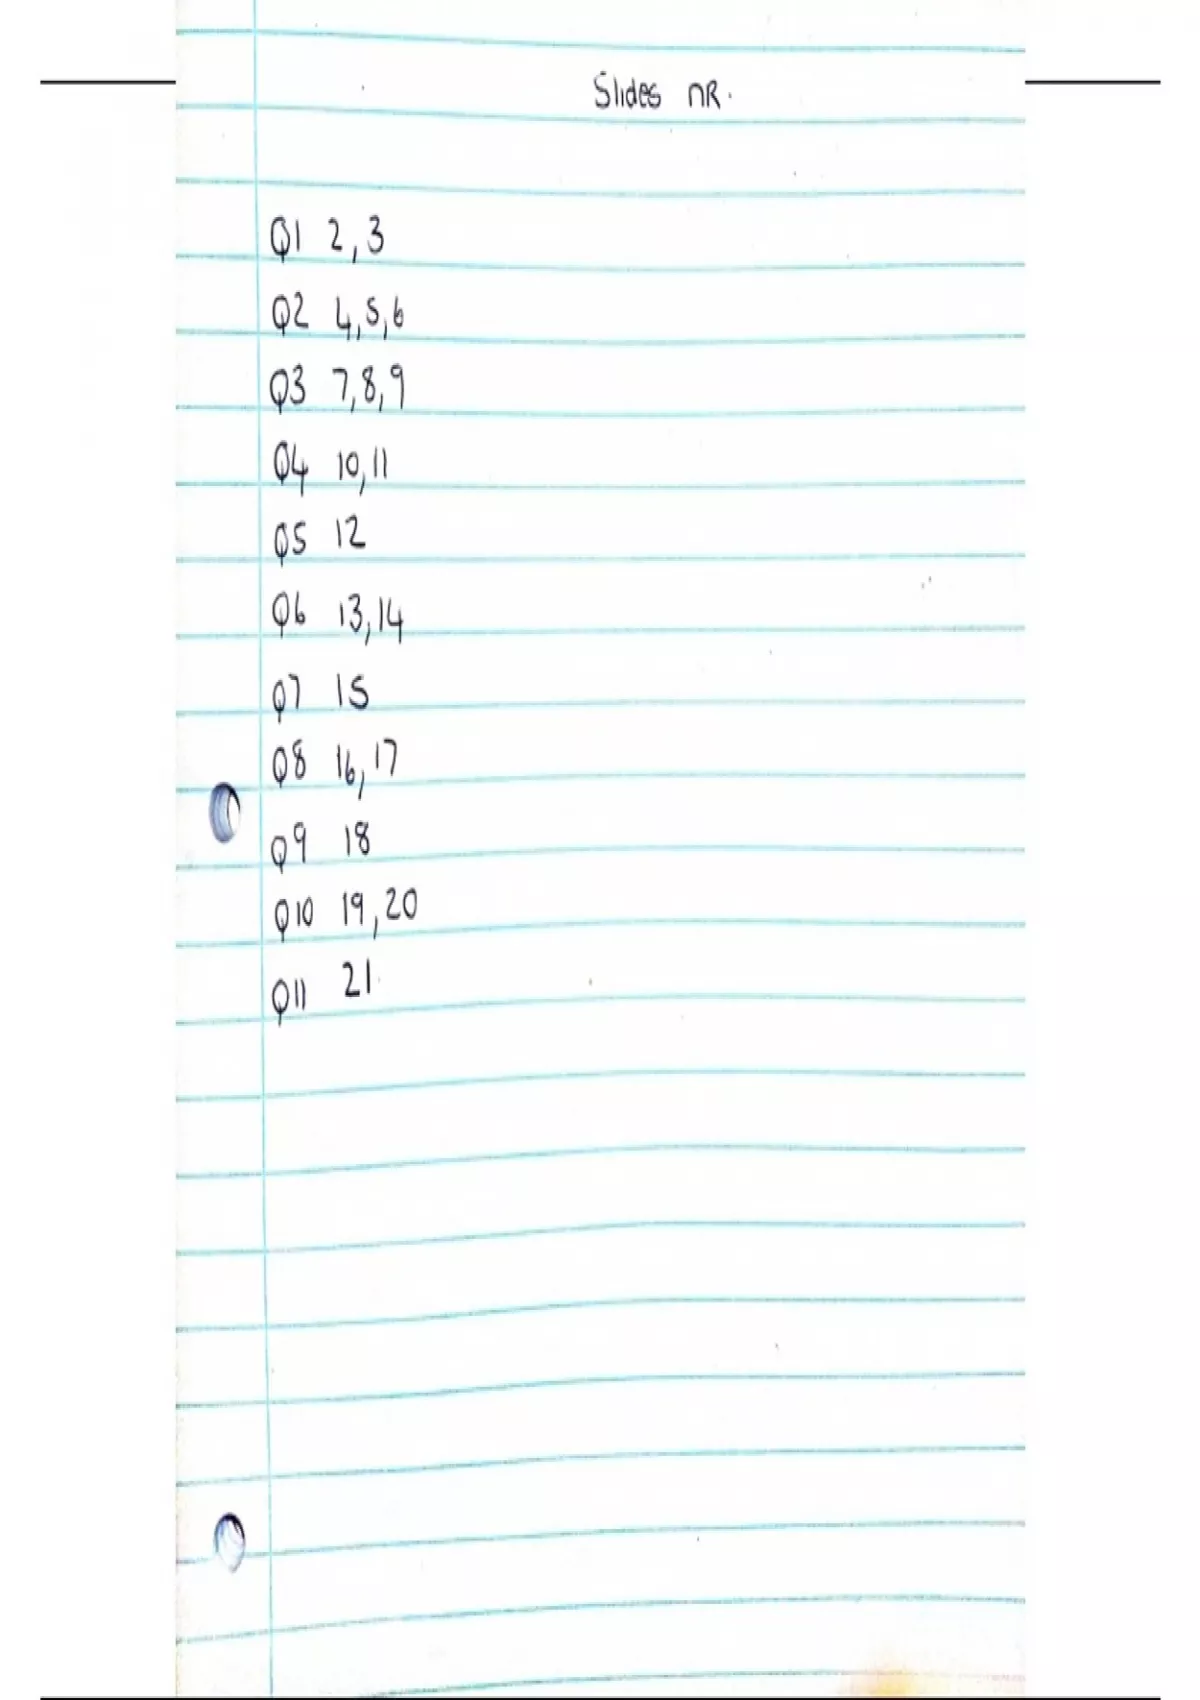 Slides nR.
Q1 2,3
Q2 4,5,6
Q3 7,8,9
Q4 10,11
Q5 12
Q6 13,14
Q7 15
Q8 16,17
Q9 18
Q10 19,20
Q11 21